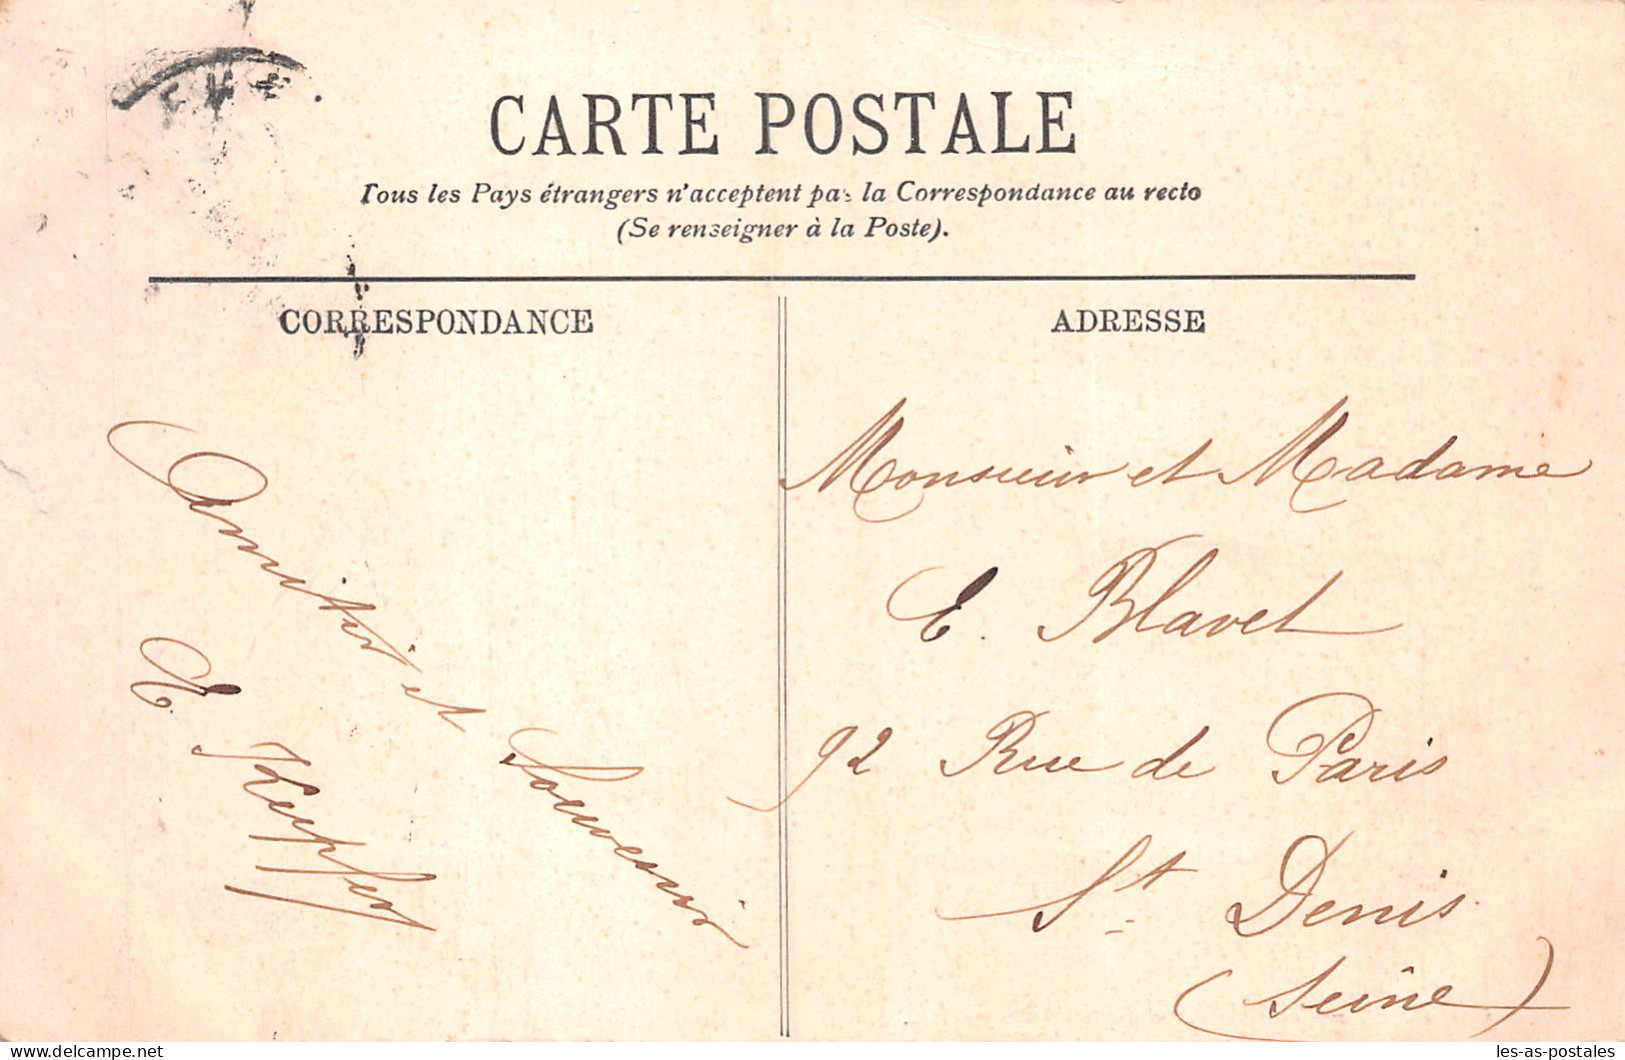 CARTE POSTALE
Tous les Pays étrangers n'acceptent pas la Correspondance au recto
(Se renseigner à la Poste).
CORRESPONDANCE
ADRESSE
Amitiés et Souvenir
E. Kupfer
Monsieur et Madame
E. Blavet
92 Rue de Paris
St. Denis
(Seine)
delcampe.net
les-as-postales